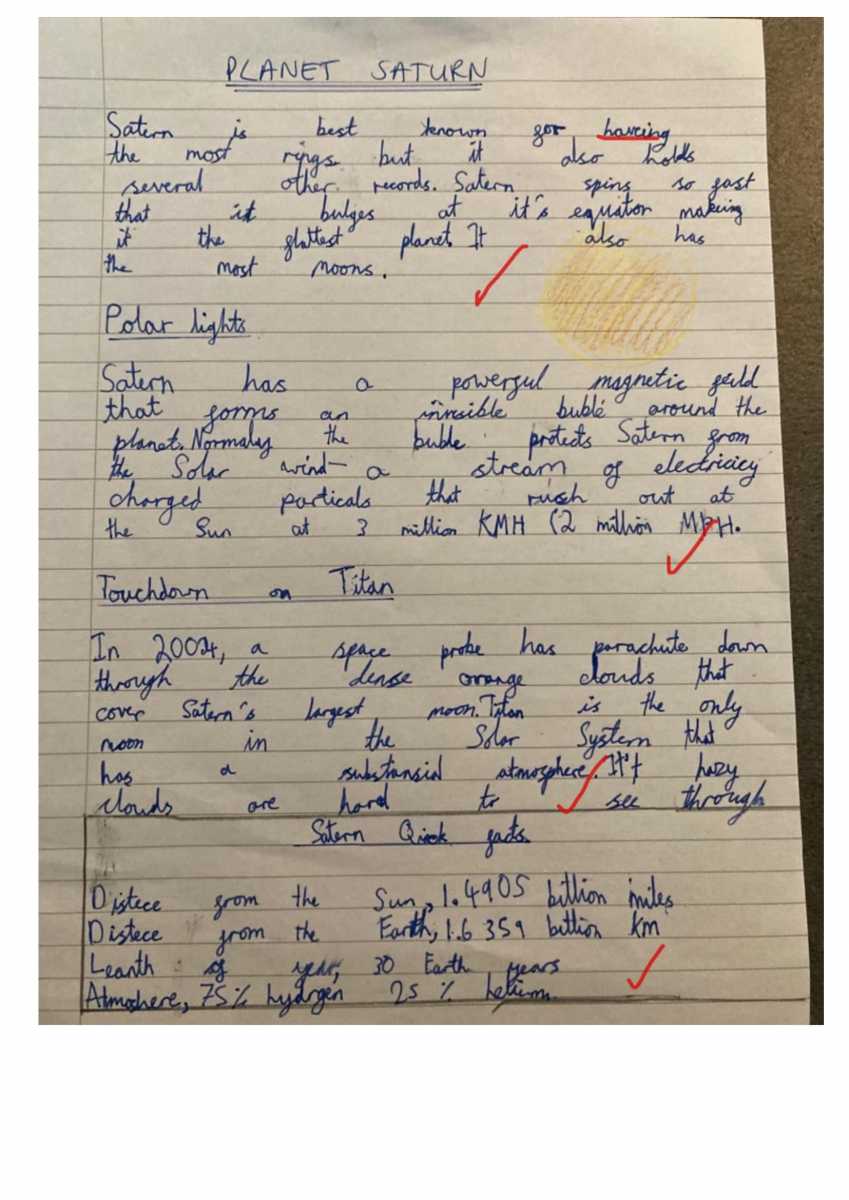 PLANET SATURN
Satern is best known for haveing
the most rings but it also holds
several other records. Satern spins so fast
that it bulges at it's equator making
it the flattest planet. It also has
the most moons.
Polar lights
Satern has a powerful magnetic feild
that forms an invisible buble around the
planet. Normaley the buble protects Satern from
the Solar wind- a stream of
charged particals that rush out at
the Sun at 3 million KMH (2 million MPH.
Touchdown on Titan
In 2004, a space probe has parachute down
through the dense orange clouds that
cover Satern's largest moon. Titan is the only
moon in the Solar System that
has a atmosphere. It's hazy
clouds are hard to see through
Satern Quick facts.
Distece from the Sun, 1.4905 billion miles
Distece from the Earth, 1.6359 billion km
Leanth of year, 30 Earth years
Atmoshere, 75% hydrgen 25 % helium.